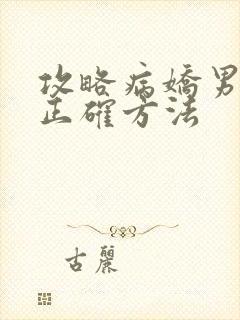 攻略病嬌男
正確方法
古麗